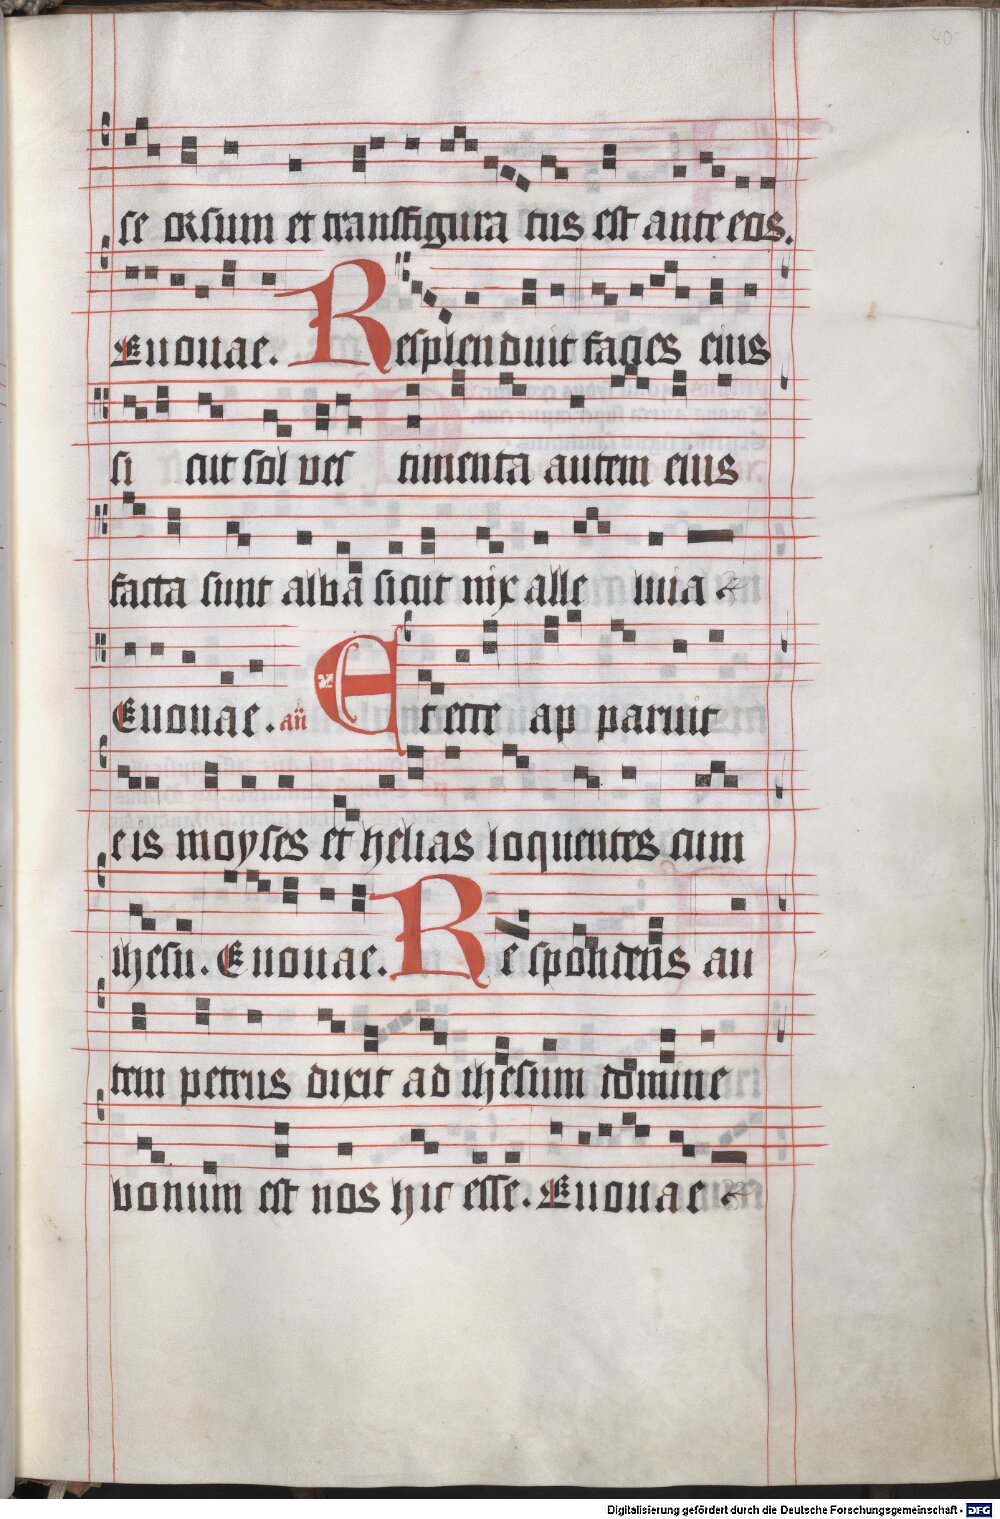 40
se orsum et transfigura tus est ante eos.
Euouae. Resplenduit facies eius
si cut sol ves timenta autem eius
facta sunt alba sicut nix alle luia
Euouae. añ Et ecce ap paruit
eis moyses et helias loquentes cum
ihesu. Euouae. Re spondens au
tem petrus dixit ad ihesum domine
bonum est nos hic esse. Euouae
Digitalisierung gefördert durch die Deutsche Forschungsgemeinschaft - DFG